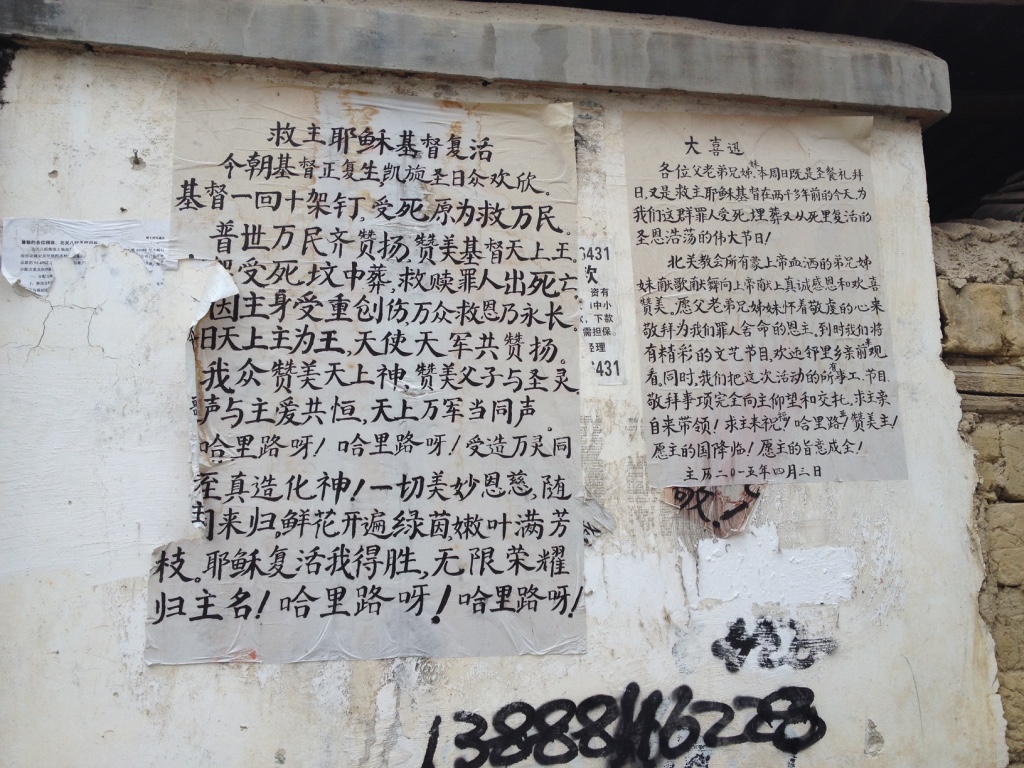 救主耶稣基督复活
今朝基督正复生,凯旋圣日众欢欣。
基督一回十架钉,受死原为救万民。
普世万民齐赞扬,赞美基督天上王,
受死,坟中葬,救赎罪人出死亡。
因主身受重创伤,万众救恩乃永长。
日天上主为王,天使天军共赞扬。
我众赞美天上神,赞美父子与圣灵
声与主爱共恒,天上万军当同声
哈里路呀!哈里路呀!受造万灵同
至真造化神!一切美妙恩慈,随
来归。鲜花开遍绿茵嫩叶满芳
枝。耶稣复活我得胜,无限荣耀
归主名!哈里路呀!哈里路呀!
大喜迅
各位父老弟兄姊妹:本周日既是圣餐礼拜
日,又是救主耶稣基督在两千多年前的今天,为
我们这群罪人受死,埋葬又从死里复活的
圣恩浩荡的伟大节日!
北关教会所有蒙上帝血洒的弟兄姊
妹献歌献舞向上帝献上真诚感恩和欢喜
赞美。愿父老弟兄姊妹怀着敬虔的心来
敬拜为我们罪人舍命的恩主。到时我们将
有精彩的文艺节目,欢迎邻里乡亲前来观
看。同时,我们把这次活动的所有事工、节目、
敬拜事项完全向主仰望和交托。求主亲
自来带领!求主来祝福!哈里路呀!赞美主!
愿主的国降临!愿主的旨意成全!
主历二0一五年四月三日
6431
欢
资有
中小
下款
需担保。
经理
6431
敬!